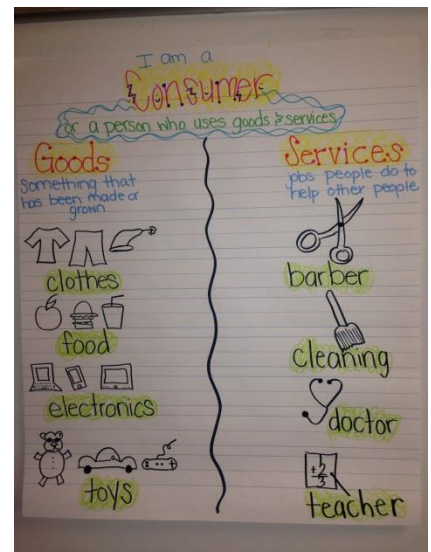 I am a
Consumer
or a person who uses goods & services
Goods
Something that
has been made or
grown
clothes
food
electronics
toys
Services
jobs people do to
help other people
barber
cleaning
doctor
+2
3
teacher